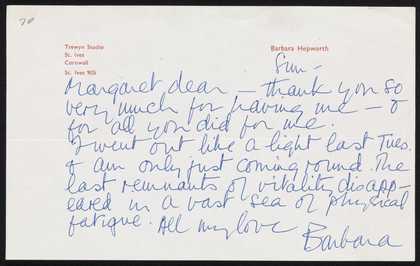 Trewyn Studio
St. Ives
Cornwall
St. Ives 905
Barbara Hepworth
Sun –
Margaret dear – thank you so
very much for having me – &
for all you did for me.
I went out like a light last Tues.
& am only just coming round. The
last remnants of vitality disapp-
eared in a vast sea of physical
fatigue. All my love
Barbara